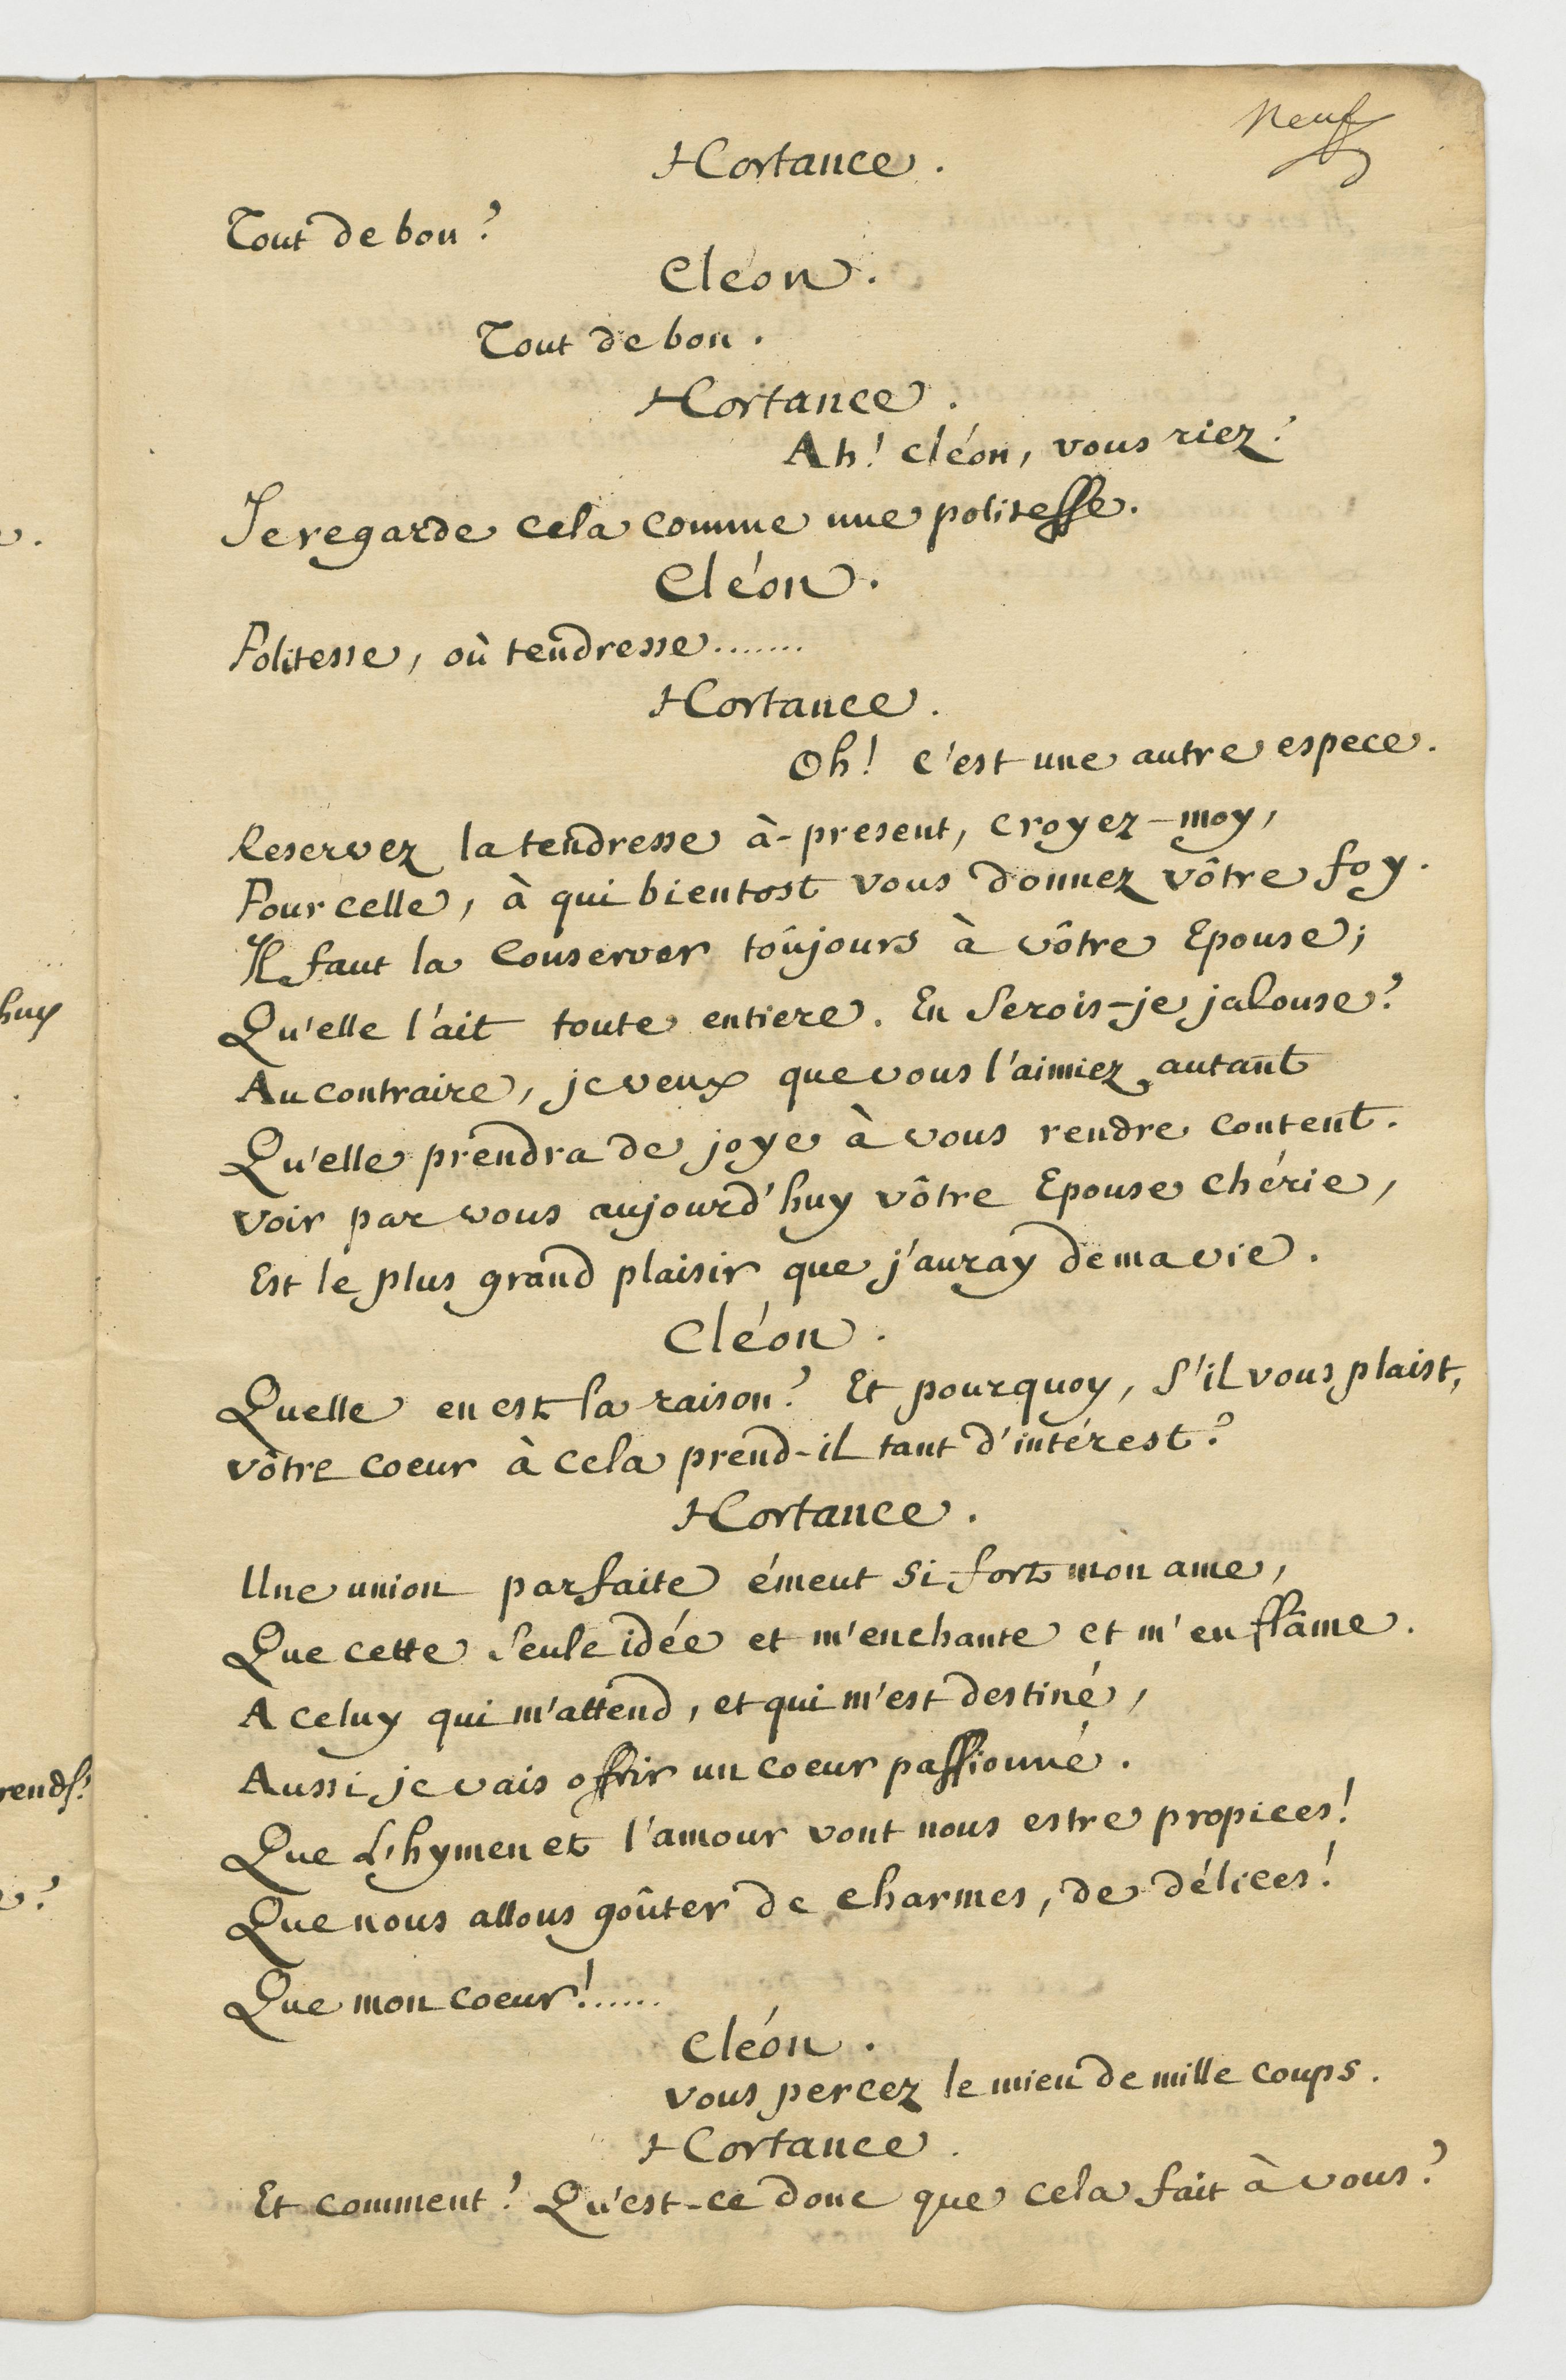 Neuf
Hortance.
Tout de bon?
Cléon.
Tout de bon.
Hortance.
Ah! cléon, vous riez?
Je regarde cela comme une politesse.
Cléon.
Politesse, où tendresse.......
Hortance.
Oh! c'est une autre espece.
Reservez la tendresse à-present, croyez-moy,
Pour celle, à qui bientost vous donnez vôtre foy.
Il faut la conserver toûjours à vôtre Epouse;
Qu'elle l'ait toute entiere. En serois-je jalouse?
Au contraire, je veux que vous l'aimiez autant
Qu'elle prendra de joye à vous rendre content.
voir par vous aujourd'huy vôtre Epouse chérie,
Est le plus grand plaisir que j'auray de ma vie.
Cléon.
Quelle en est la raison? Et pourquoy, s'il vous plaist,
vôtre coeur à cela prend-il tant d'intérest?
Hortance.
Une union parfaite émeut si fort mon ame,
Que cette seule idée et m'enchante et m'enflâme.
A celuy qui m'attend, et qui m'est destiné,
Aussi je vais offrir un coeur passionné.
Que L'hymen et l'amour vont nous estre propices!
Que nous allons goûter de charmes, de délices!
Que mon coeur!......
Cléon.
vous percez le mien de mille coups.
Hortance.
Et comment? Qu'est-ce donc que cela fait à vous?
huy
rends?